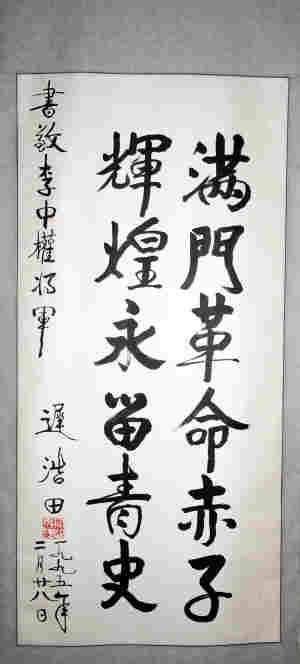 满門革命赤子
輝煌永留青史
書敬李中權将軍
遲浩田
一九九五年
二月廿八日